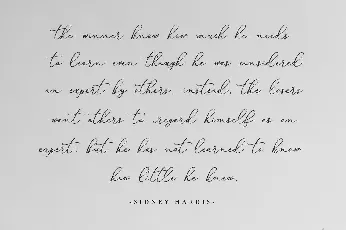 the winner know how much he needs
to learn even though he was considered
an expert by others. instead, the losers
want others to regard himself as an
expert. but he has not learned to know
how little he knew.
-SIDNEY HARRIS-